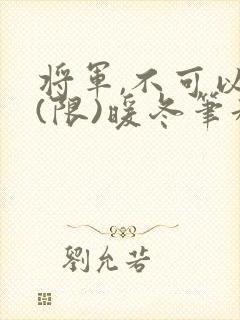 將軍,不可以
(限)暖冬筆
劉允若